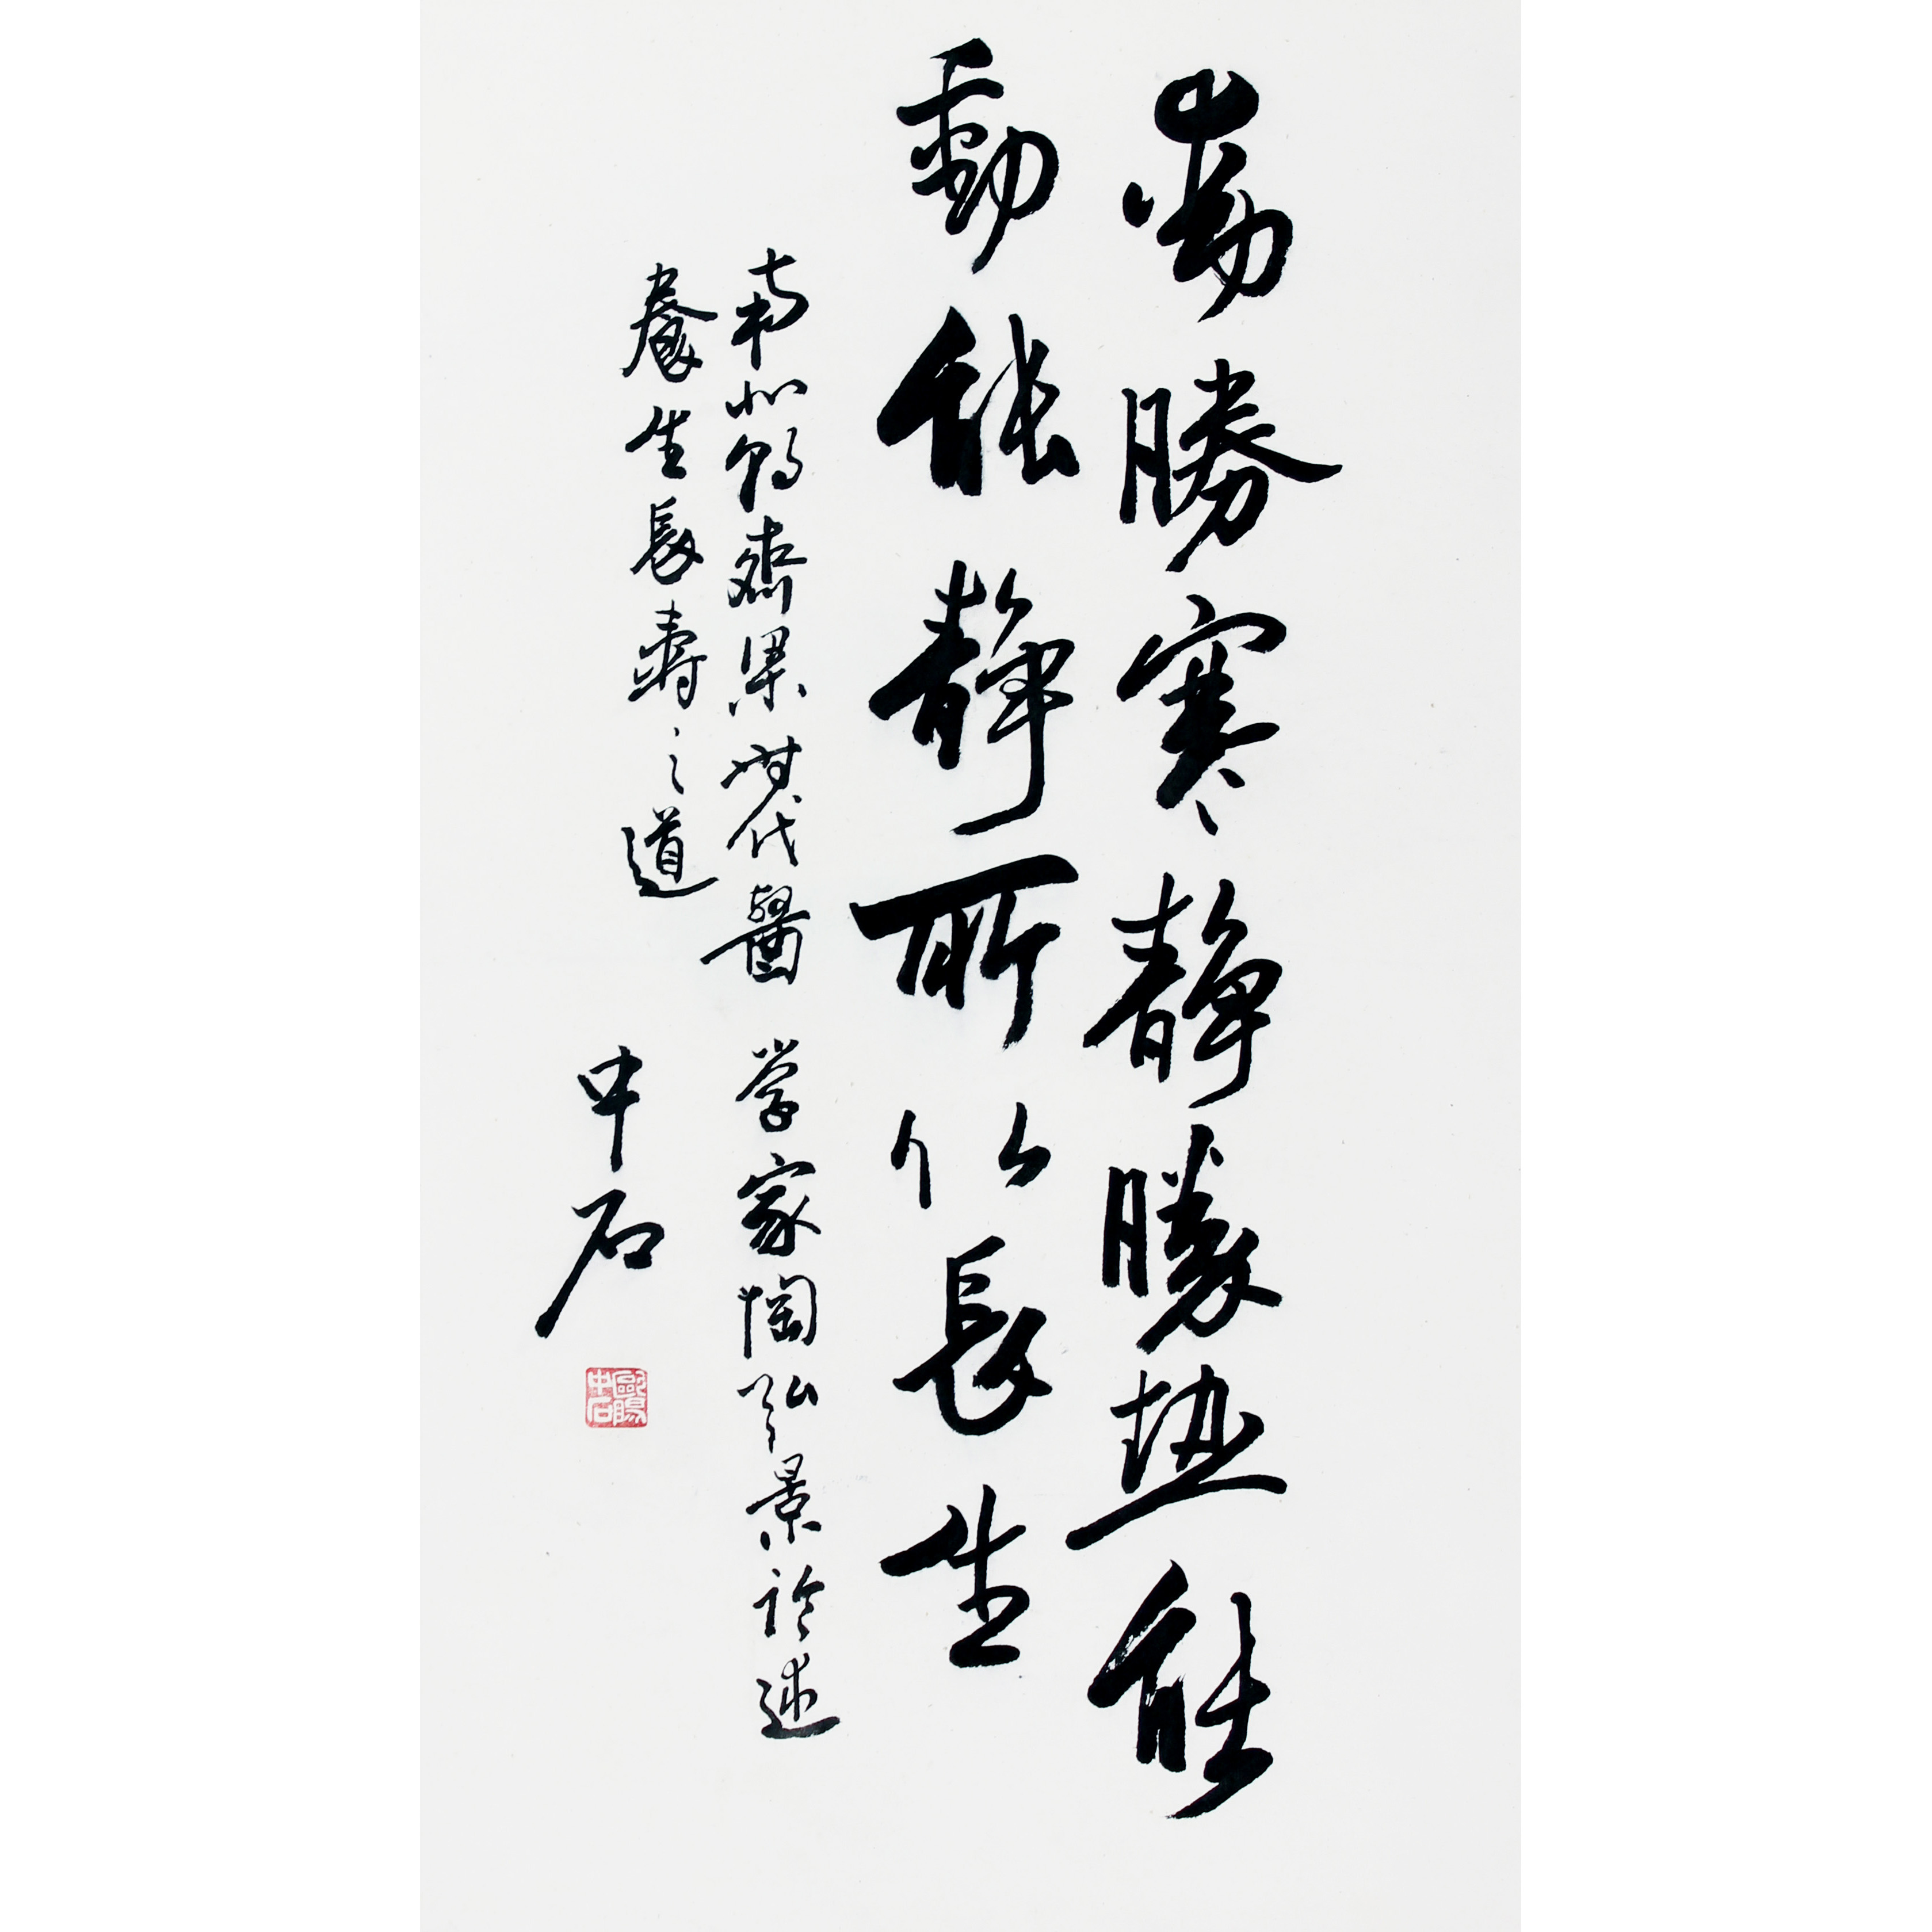 勝寒靜勝熱能
動能靜所以長生
南北朝齊梁時代醫学家陶弘景論述
養生長壽之道
中石
歐陽中石